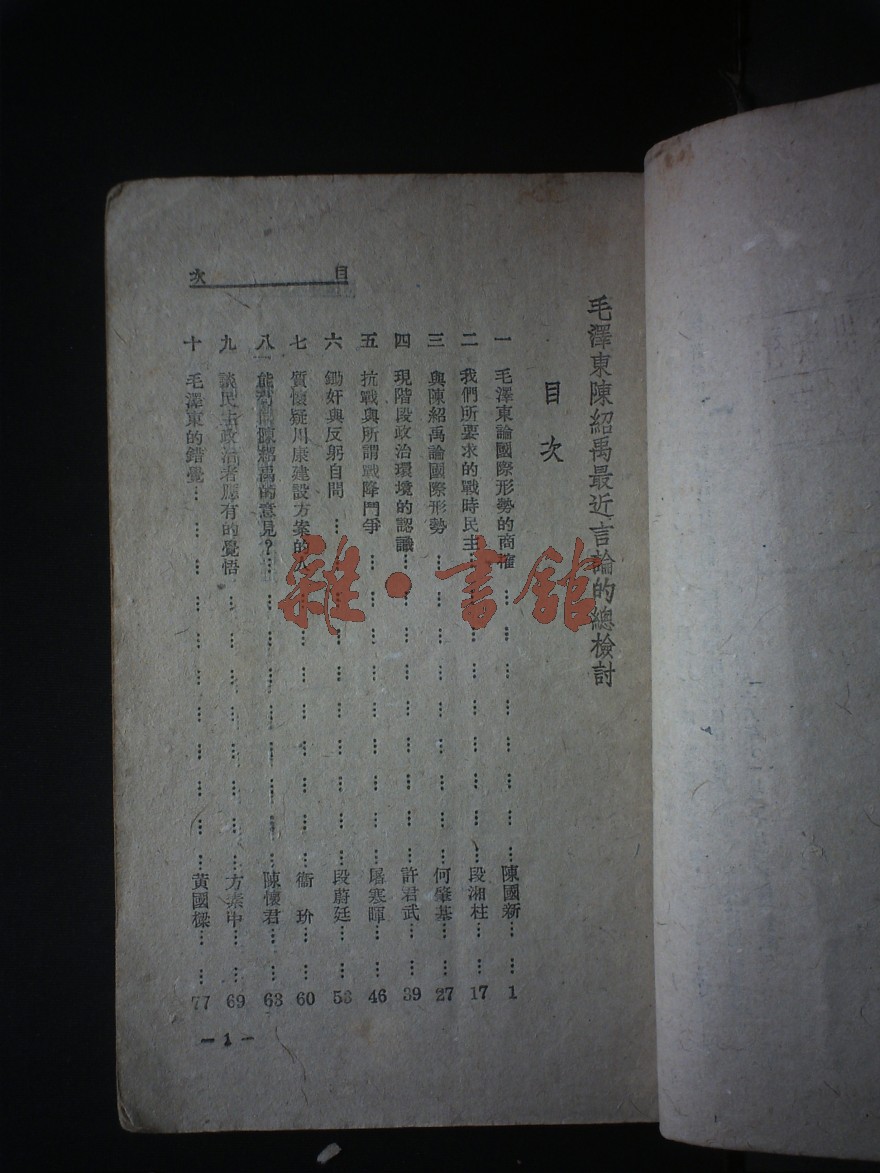 毛澤東陳紹禹最近言論的總檢討
目次
一 毛澤東論國際形勢的商榷 … … … … … … … … 陳國新 … … 1
二 我們所要求的戰時民主 … … … … … … … … 段湘柱 … … 17
三 與陳紹禹論國際形勢 … … … … … … … … 何肇基 … … 27
四 現階段政治環境的認識 … … … … … … … … 許君武 … … 39
五 抗戰與所謂戰降鬥爭 … … … … … … … … 屠寒暉 … … 46
六 鋤奸與反躬自問 … … … … … … … … … 段蔚廷 … … 53
七 質懷疑川康建設方案的人 … … … … … … … 衞玠 … … 60
八 陳紹禹的意見? … … … … … … … … 陳懷君 … … 63
九 談民主政治者應有的覺悟 … … … … … … … … 方秦中 … … 69
十 毛澤東的錯覺 … … … … … … … … … … 黃國樑 … … 77
目次
— 1 —
雜·書館